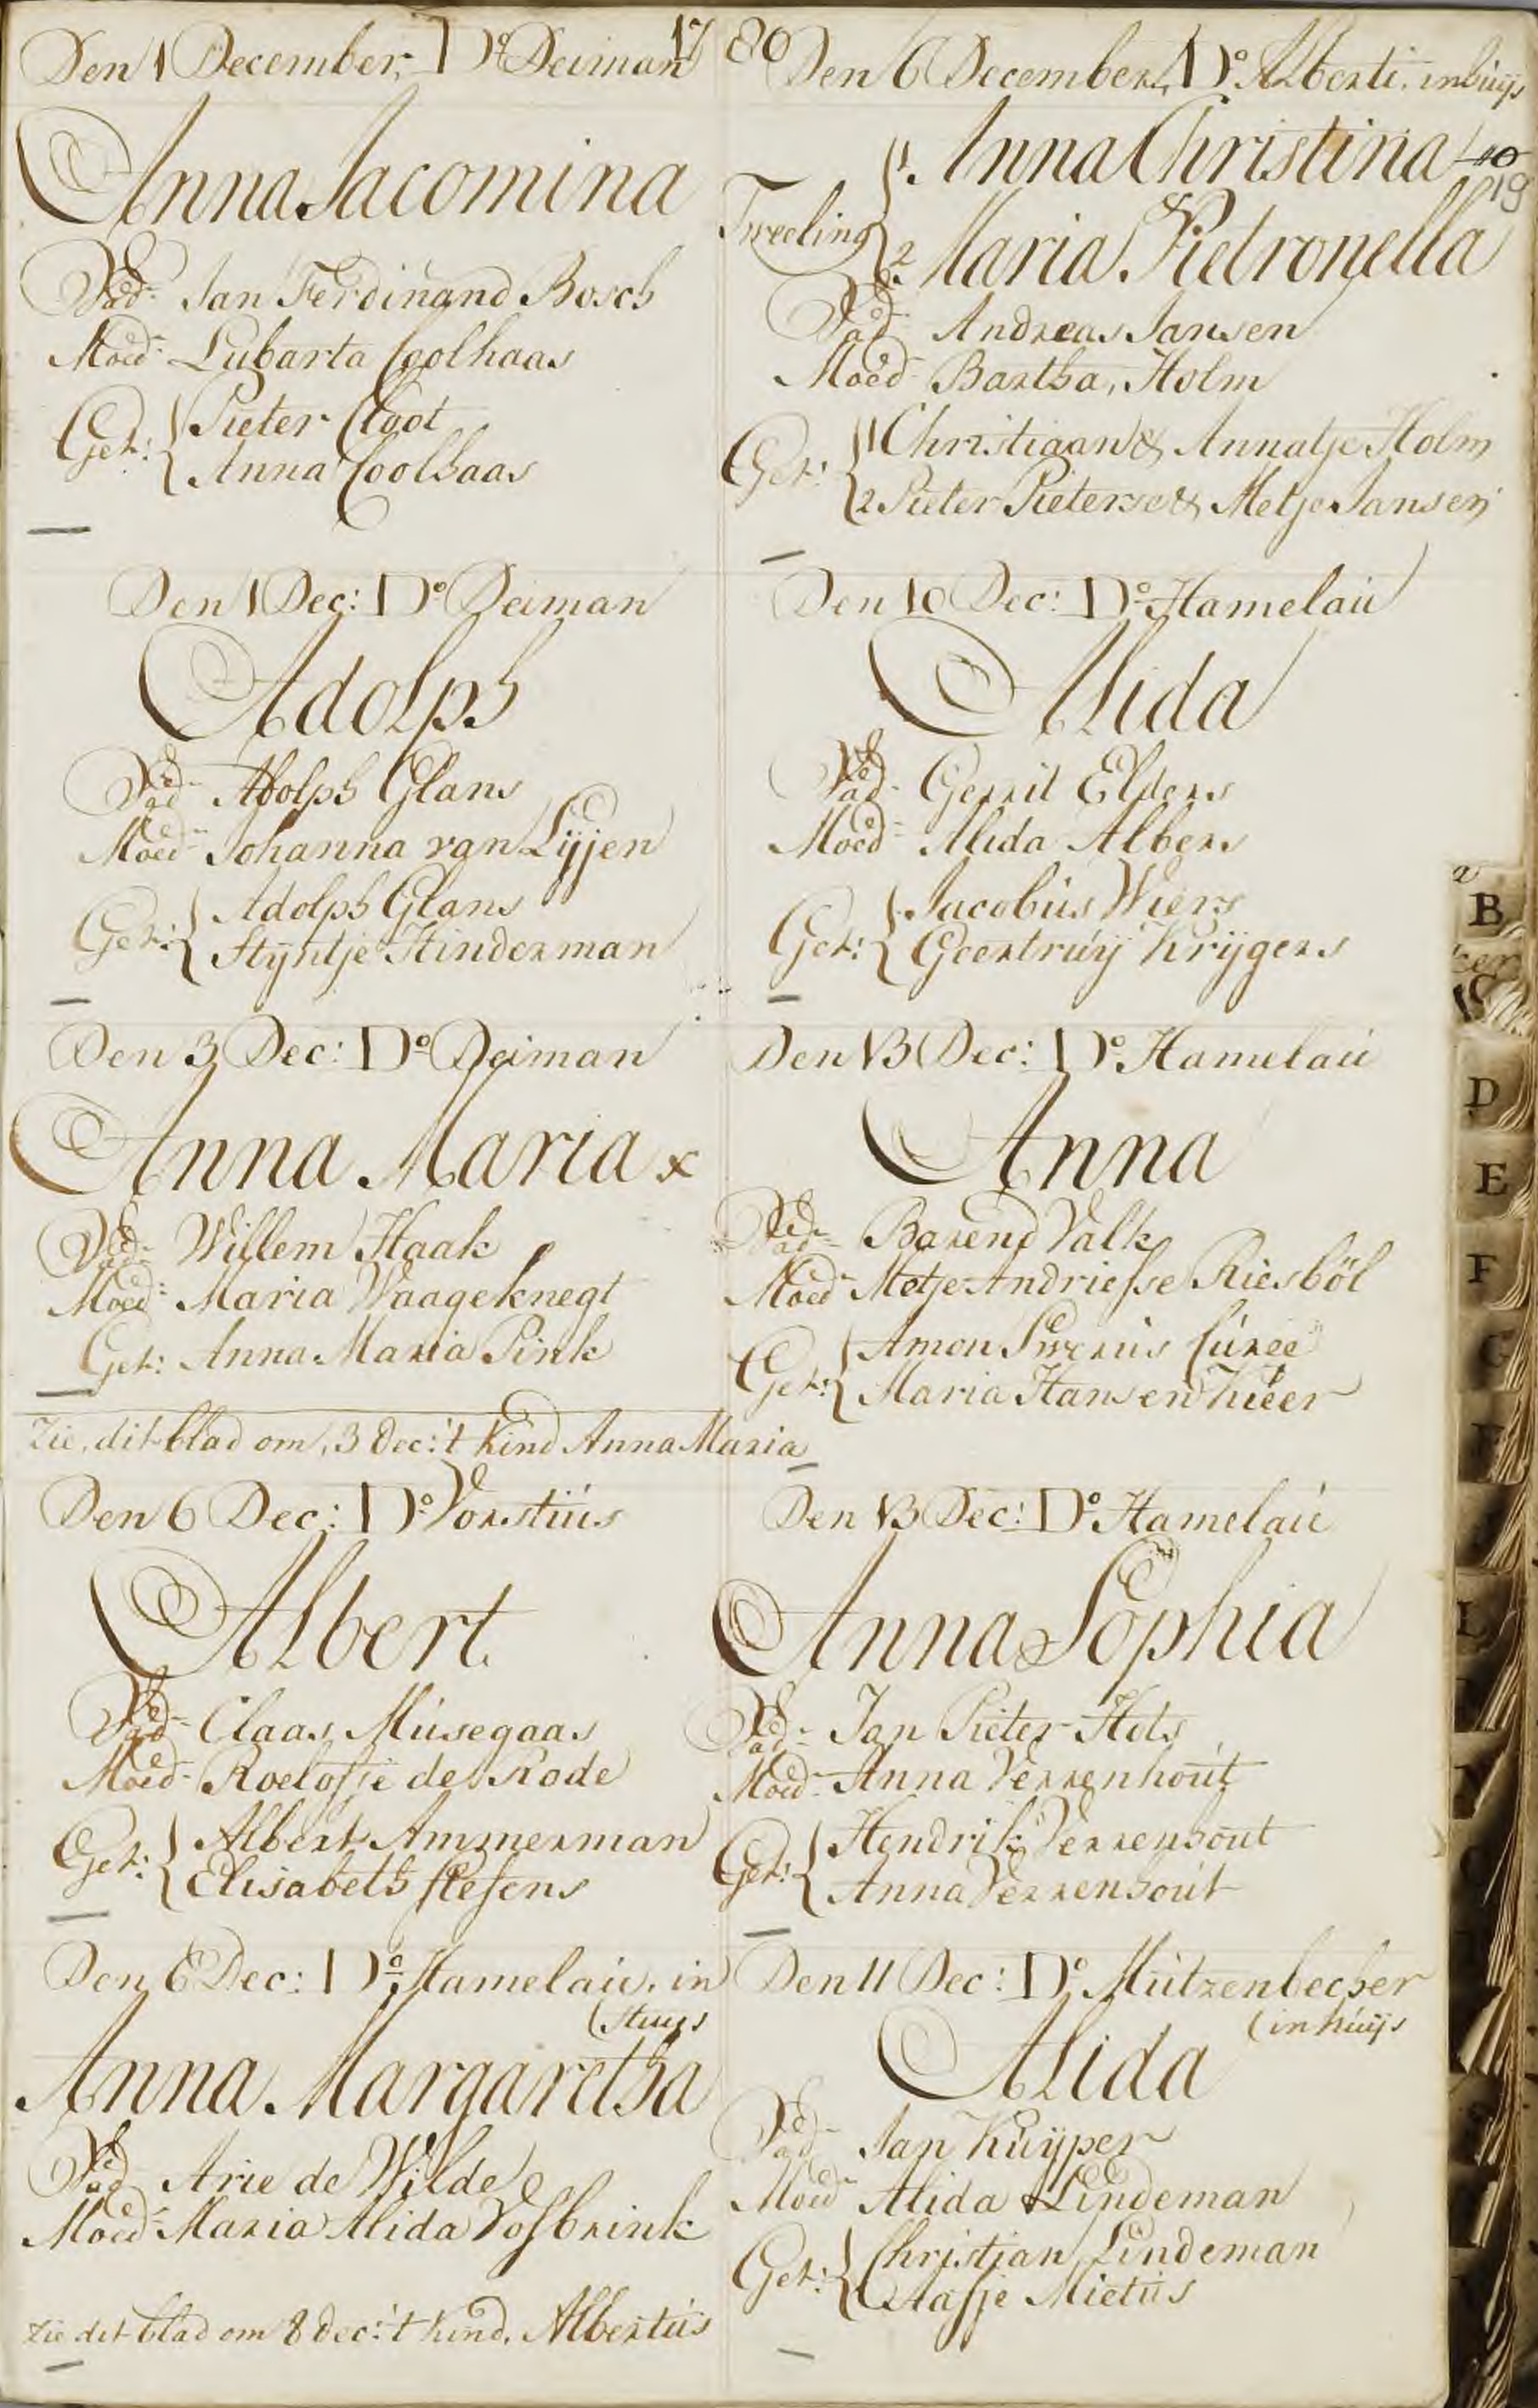 1780
Den 1 December, Do. Deiman
Anna Jacomina
Vad. Jan Ferdinand Bosch
Moed. Lubarta Coolhaas
Get: { Pieter Cloot
Anna Coolhaas
Den 1 Dec: Do. Deiman
Adolph
Vad. Adolph Glans
Moed. Johanna van Lijjen
Get: { Adolph Glans
Stijntje Hinderman
Den 3 Dec: Do. Deiman
Anna Maria x
Vad. Willem Haak
Moed. Maria Waageknegt
Get: Anna Maria Pink
Zie dit blad om, 3 Dec: 't kind Anna Maria
Den 6 Dec: Do. Vorstius
Albert
Vad. Claas Musegaas
Moed. Roelofje de Rode
Get: { Albert Ammerman
Elisabeth
Den 6 Dec: Do. Hamelau, in
(Huijs
Anna Margaretha
Vad. Arie de Wilde
Moed. Maria Alida Vosbrink
Zie dit blad om 8 Dec: 't kind, Albertus
Den 6 December, Do. Alberti, in huijs
Tweeling { 1. Anna Christina
&
2. Maria Pietronella
19
Vad. Andreas Jansen
Moed. Bartha Holm
Get: { 1 Christiaan & Annatje Holm
2 Pieter Pieterse & Metje Jansen
Den 10 Dec: Do. Hamelau
Alida
Vad. Gerrit Elders
Moed. Alida Albers
Get: { Jacobus Wiers
Geertruij Krijgers
Den 13 Dec: Do. Hamelau
Anna
Vad. Barend Valk
Moed. Metje Andriesse Riesböl
Get: { Amon
Maria Hansen Kieer
Den 13 Dec: Do. Hamelau
Anna Sophia
Vad. Jan Pieter Hots
Moed. Anna Verrenhout
Get: { Hendrik Verrenhout
Anna Verrenhout
Den 11 Dec: Do. Mutzenbecher
(in huijs
Alida
Vad. Jan Kuijper
Moed. Alida Lindeman
Get: { Christian Lindeman
Aafje Mietus
B
C
D
E
F
G
L